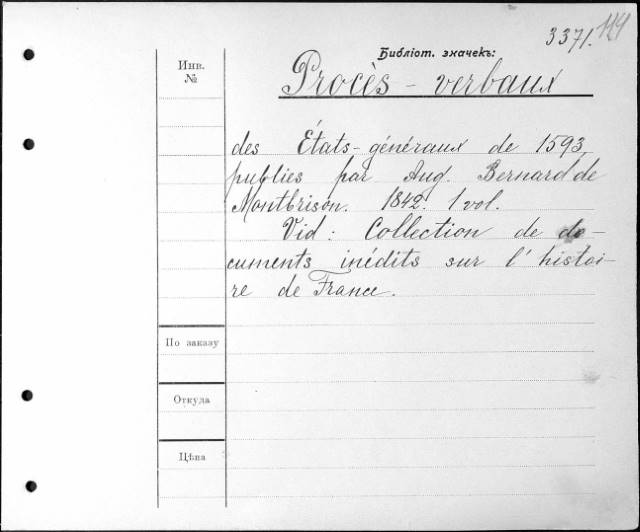 3371. 114
Библіот. значекъ:
Инв.
№
Procès-verbaux
des États-généraux de 1593
publies par Aug. Bernard de
Montbrison. 1842. 1 vol.
Vid: Collection de do-
cuments inédits sur l'histoi-
re de France.
По заказу
Откуда
Цѣна